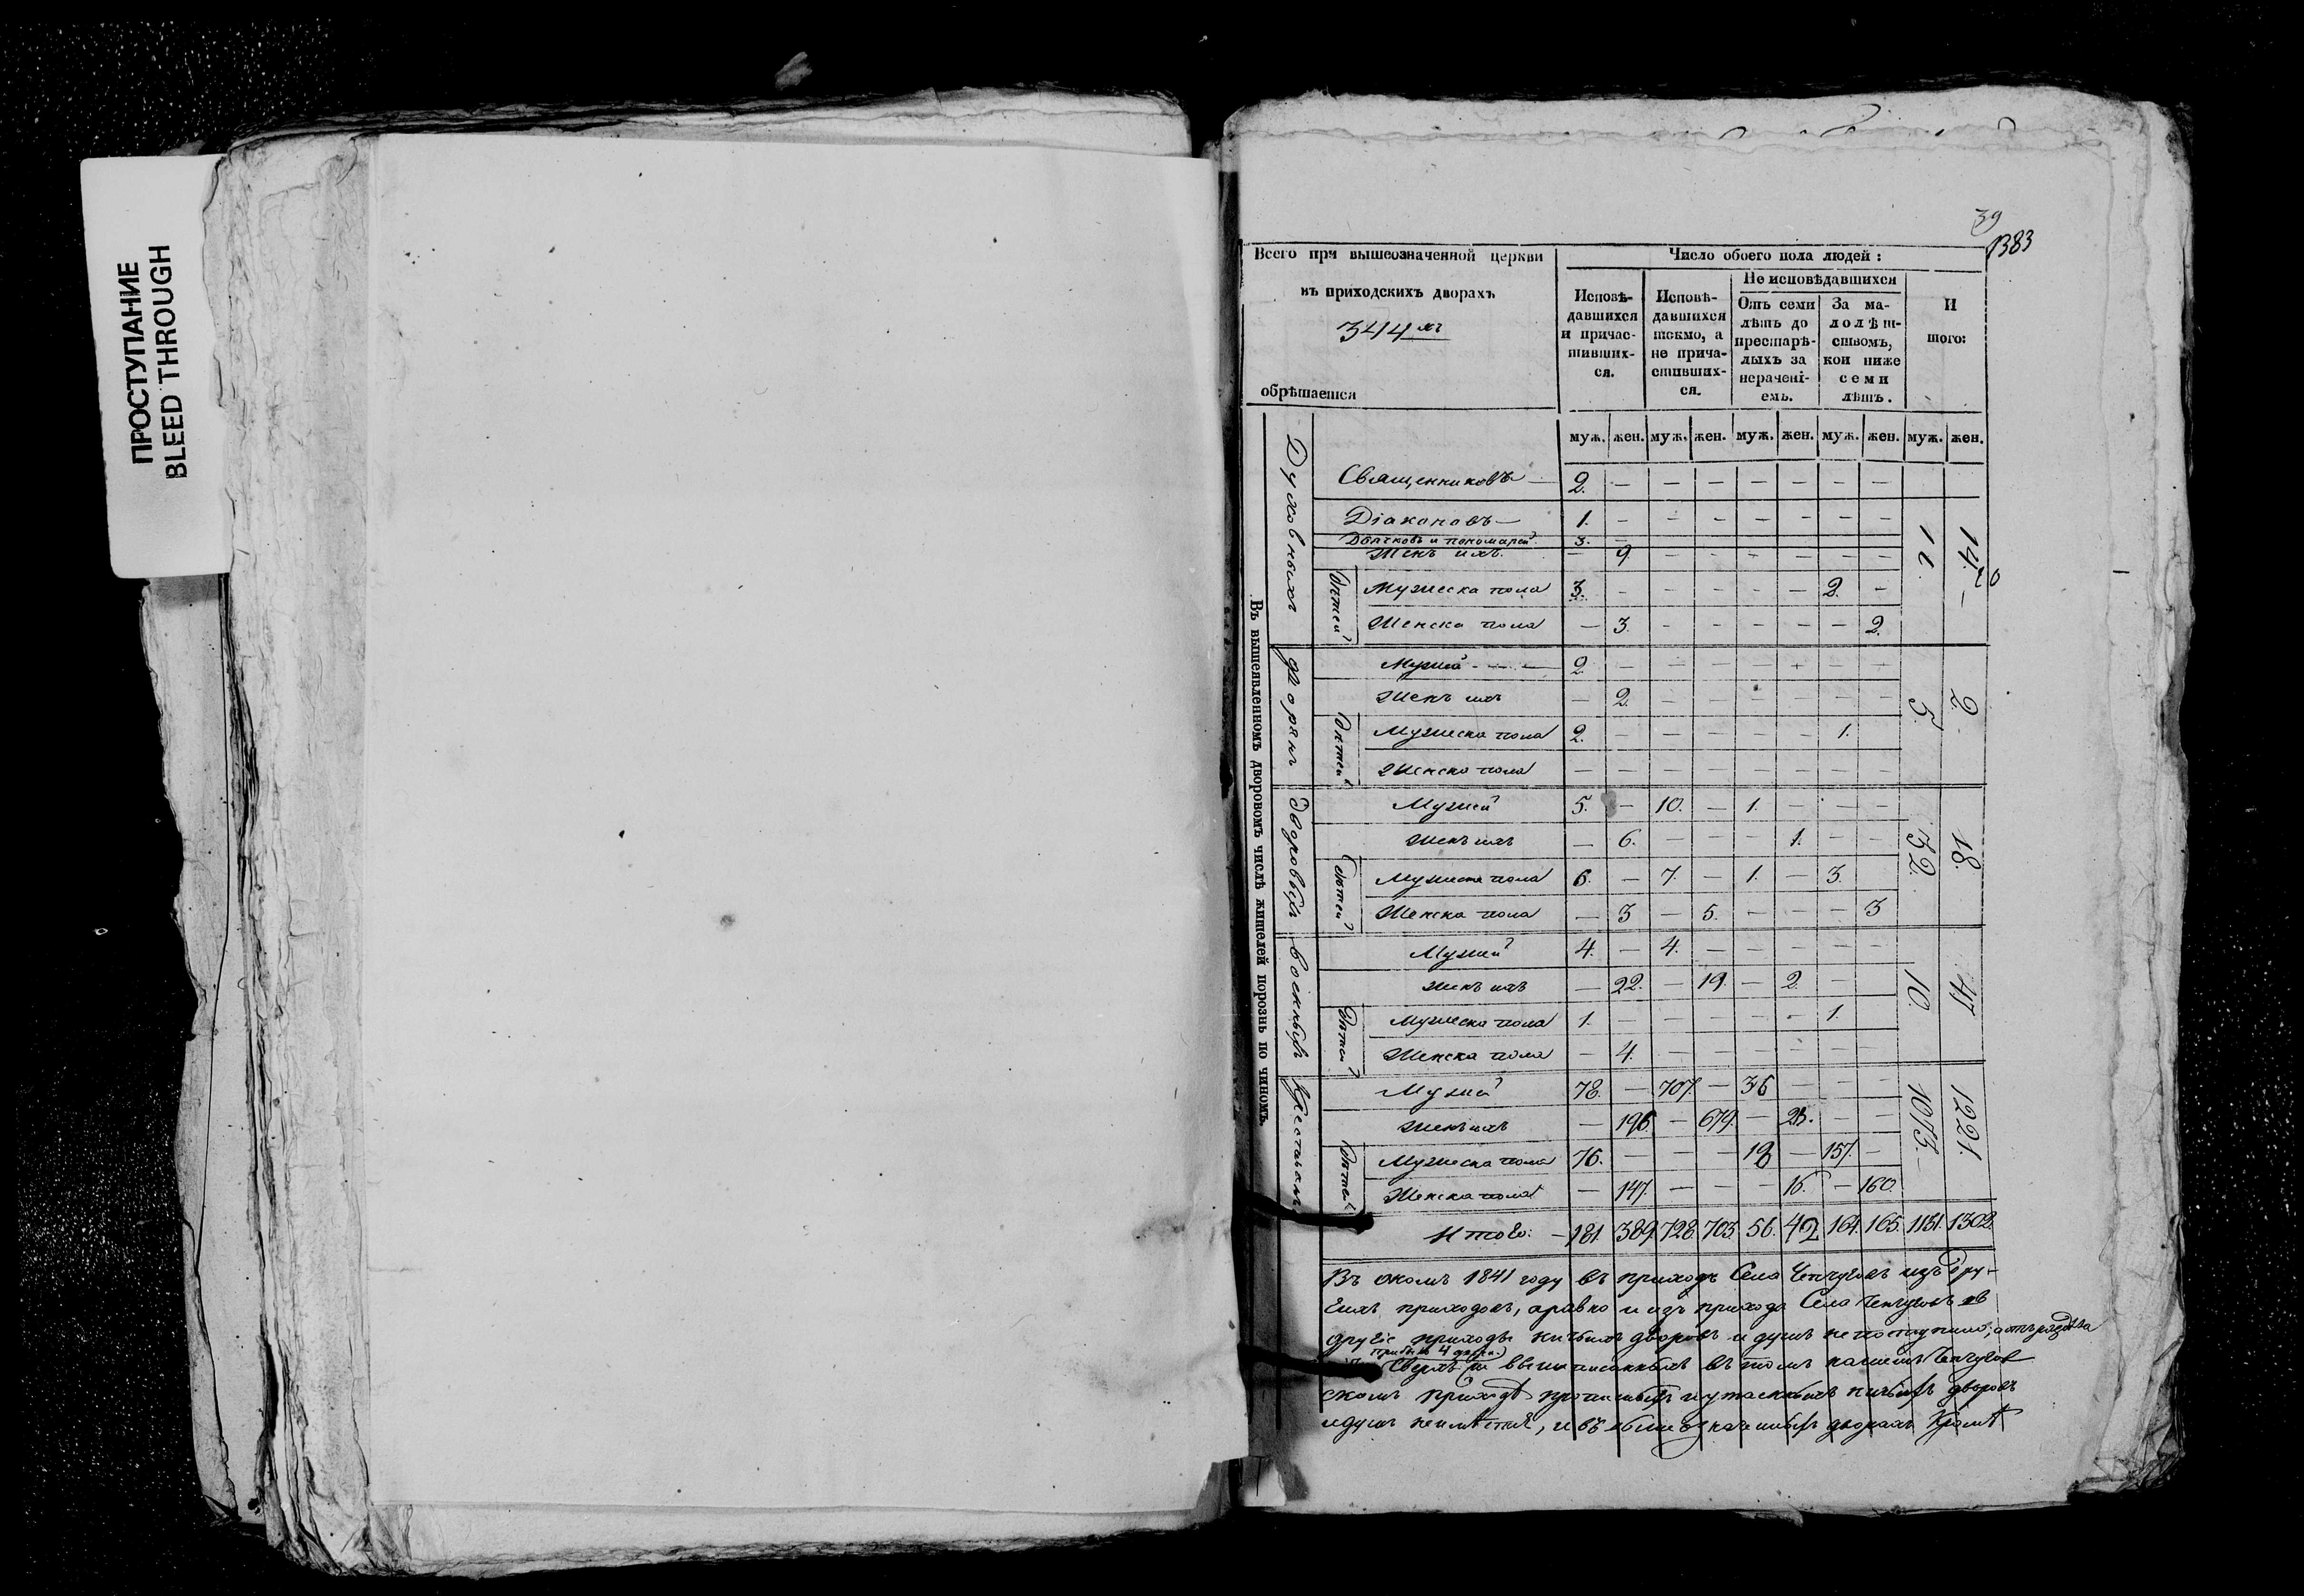 ПРОСТУПАНИЕ
BLEED THROUGH
39
1383
Всего при вышеозначенной церкви
въ приходскихъ дворахъ
344хъ
обрѣтается
Число обоего пола людей:
Исповѣ-
давшихся
и причас-
тивших-
ся.
Исповѣ-
давшихся
токмо, а
не прича-
стивших-
ся.
Не исповѣдавшихся
Отъ семи
лѣтъ до
престарѣ-
лыхъ за
нерачені-
емъ.
За ма-
лолѣт-
ствомъ,
кои ниже
семи
лѣтъ.
И
того:
муж. жен. муж. жен. муж. жен. муж. жен. муж. жен.
Въ вышеявленномъ дворовомъ числѣ жителей порознь по чиномъ.
Духовныхъ
Священниковъ — 2. — — — — — — —
Діаконовъ — 1. — — — — — — —
Дьячковъ и пономарей 3. —
Женъ ихъ. — 9 — — — — — —
Дѣтей
Мужеска пола 3. — — — — — 2. —
Женска пола — 3. — — — — — 2.
14.
Дворянъ
Мужей 2. — — — — — — —
Женъ ихъ — 2. — — — — — —
Дѣтей
Мужеска пола 2. — — — — — 1.
Женска пола — — — — — — — —
5. 2.
Дворовыхъ
Мужей 5. — 10. — 1. — — —
Женъ ихъ — 6. — — — 1. — —
Дѣтей
Мужеска пола 6. — 7. — 1. — 3.
Женска пола — 3 — 5. — — — 3
32. 18.
Военныхъ
Мужей 4. — 4. — — — — —
Женъ ихъ — 22. — 19. — 2. —
Дѣтей
Мужеска пола 1. — — — — — 1.
Женска пола — 4. — — — — — —
10 47
Крестьянъ
Мужей 78. — 707. — 36 — — —
Женъ ихъ — 196. — 679. — 23. — —
Дѣтей
Мужеска пола 76. — — — 18 — 157. —
Женска пола — 147. — — — 16. — 160.
1073. 1221.
Итого: — 181. 389. 728. 703. 56. 42 164. 165. 1131. 1302.
Въ ономъ 1841 году въ приходъ Села изъ дру-
гихъ приходовъ, а равно и изъ прихода Села въ
другіе приходы дворовъ и душъ не поступило;
прибыло 4
Сверхъ въ томъ нашемъ
скомъ приходѣ и утаенныхъ дворовъ
и душъ неимѣется, и въ дворахъ Кромѣ